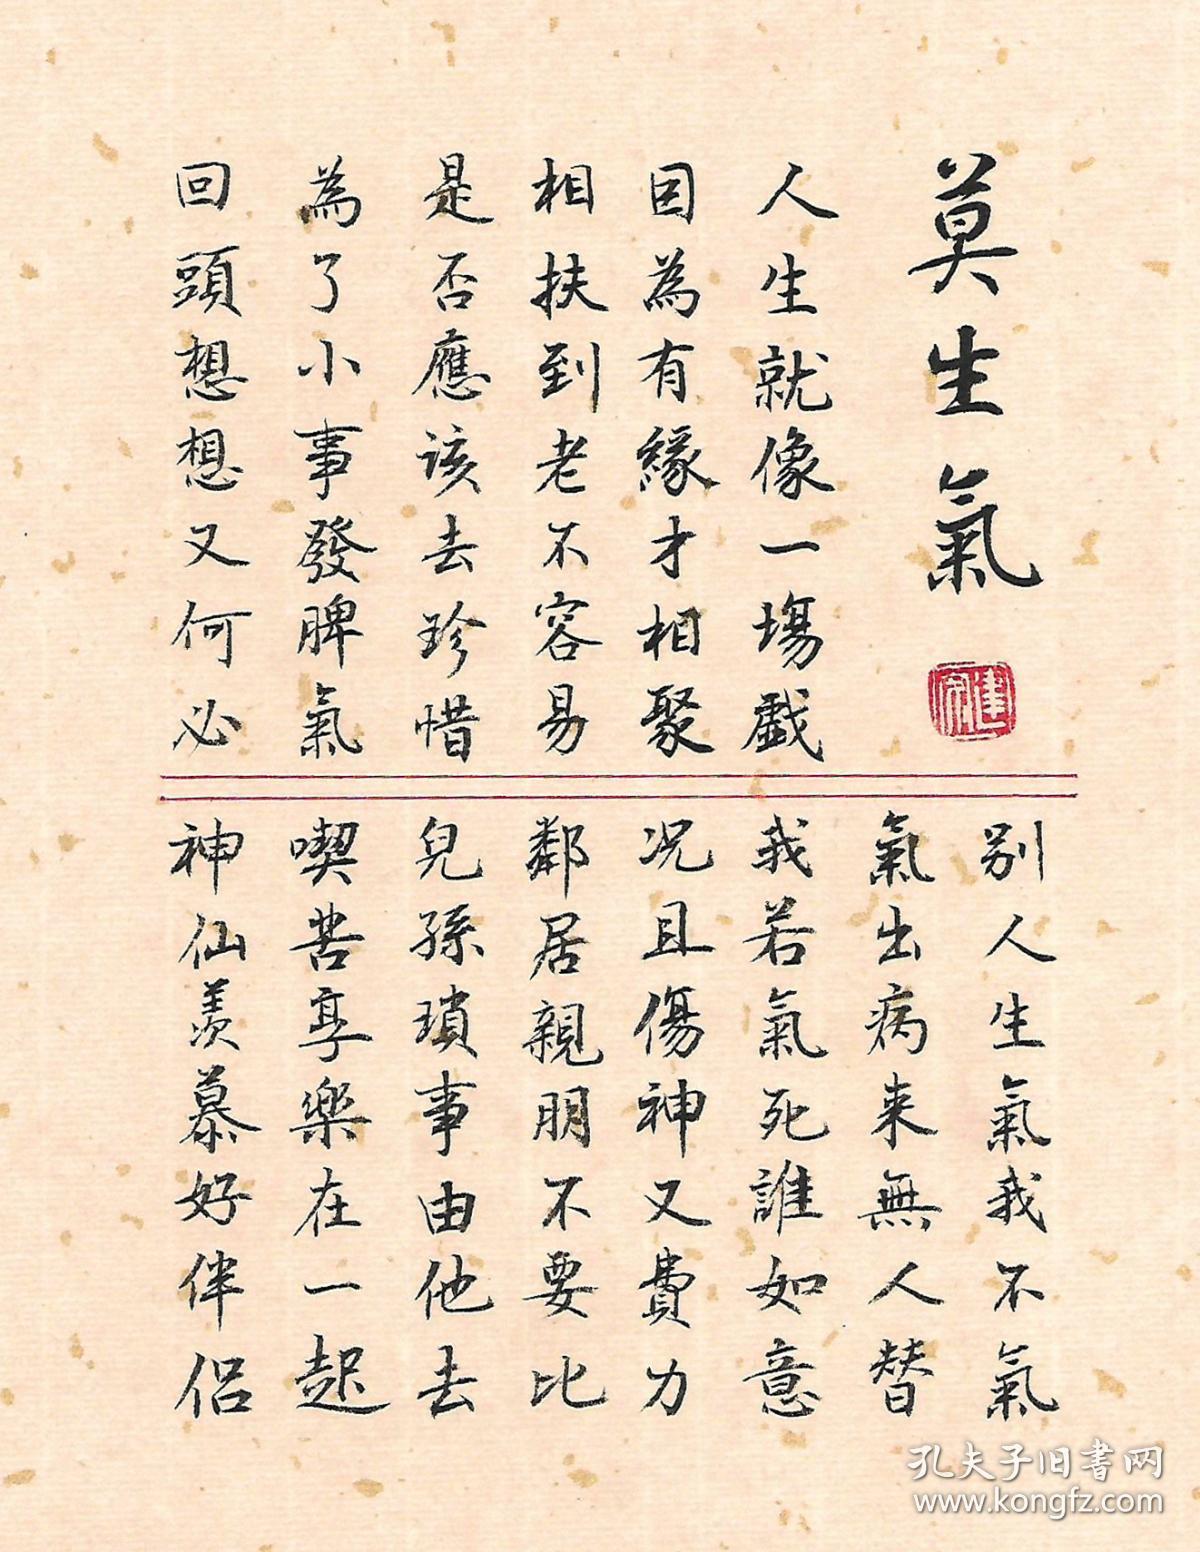 莫生氣
人生就像一場戲
因為有緣才相聚
相扶到老不容易
是否應該去珍惜
為了小事發脾氣
回頭想想又何必
別人生氣我不氣
氣出病来無人替
我若氣死誰如意
况且傷神又費力
鄰居親朋不要比
兒孫瑣事由他去
喫苦享樂在一起
神仙羨慕好伴侶
孔夫子旧书网
www.kongfz.com